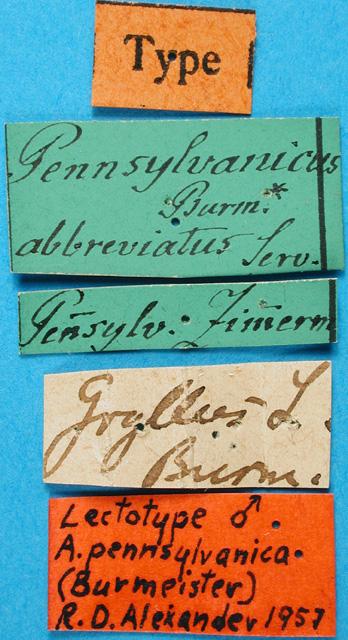 Type
Pennsylvanicus
Burm.*
abbreviatus Serv.
Pen̄sylv. Zim̄erm
Gryllus L.
Burm.
Lectotype ♂.
A. pennsylvanica
(Burmeister)
R. D. Alexander 1957